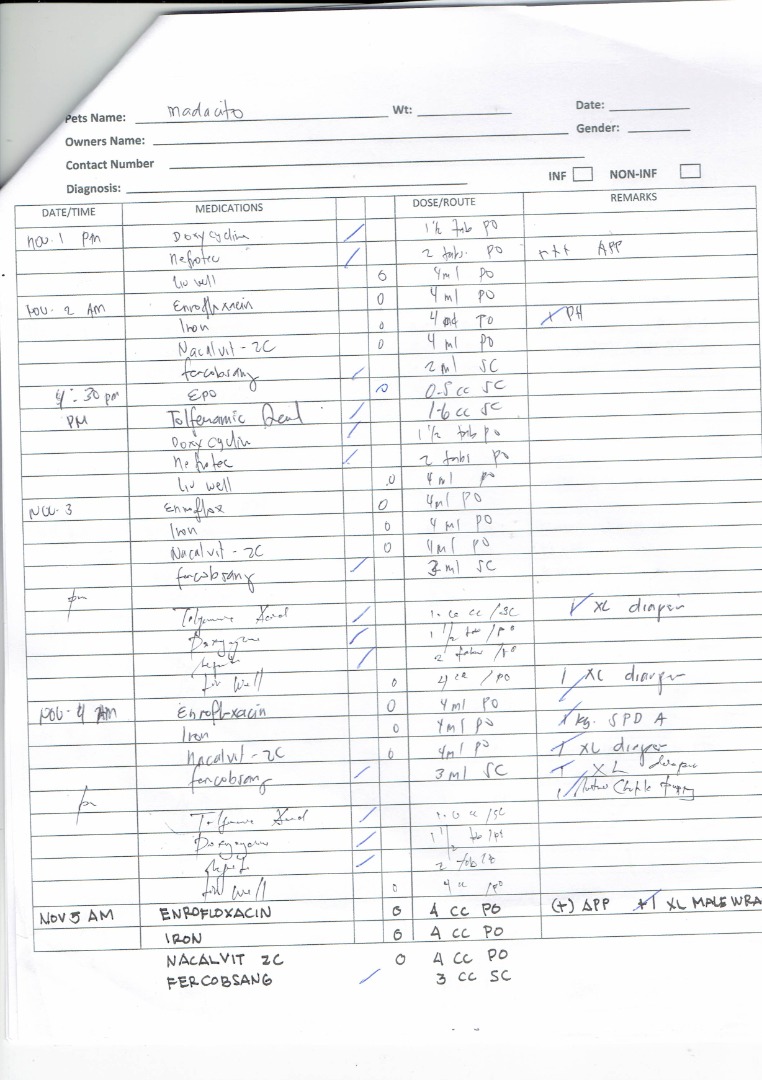 Pets Name: madacito Wt: Date:
Owners Name: Gender:
Contact Number
Diagnosis: INF NON-INF
DATE/TIME MEDICATIONS DOSE/ROUTE REMARKS
Nov. 1 PM Doxycyclin / 1 1/2 tab PO
Nefrotec / 2 tabs. PO +++ APP
Liv well 0 4ml PO
Nov. 2 AM Enrofloxacin 0 4 ml PO
Iron 0 4 PO PH
Nacalvit - 2C 0 4 ml PO
fercobsang / 2 ml SC
4:30 pm EPO 0 0.5 cc SC
PM Tolfenamic / 1.6 cc SC
Doxycyclin / 1 1/2 tab PO
Nefrotec / 2 tabs PO
Liv well 0 4 ml PO
Nov. 3 Enroflox 0 4ml PO
Iron 0 4 ml PO
Nacalvit - 2C 0 4ml PO
fercobsang / 3 ml SC
pm
/ cc /SC / XL diaper
/ 1 1/2 tab /PO
/ 2 /PO
Liv Well 0 4 cc /PO 1 XL diaper
Nov. 4 AM Enrofloxacin 0 4ml PO kg. SPD A
Iron 0 4ml PO
Nacalvit - 2C 0 4ml PO 1 XL diaper
fercobsang / 3 ml SC 1 XL diaper
pm
/ cc /SC
/ 1 1/2
/ 2 tab
Liv Well 0 4 cc /PO
NOV 5 AM ENROFLOXACIN 0 4 CC PO (+) APP +1 XL MALE WRA
IRON 0 4 CC PO
NACALVIT 2C 0 4 CC PO
FERCOBSANG / 3 CC SC